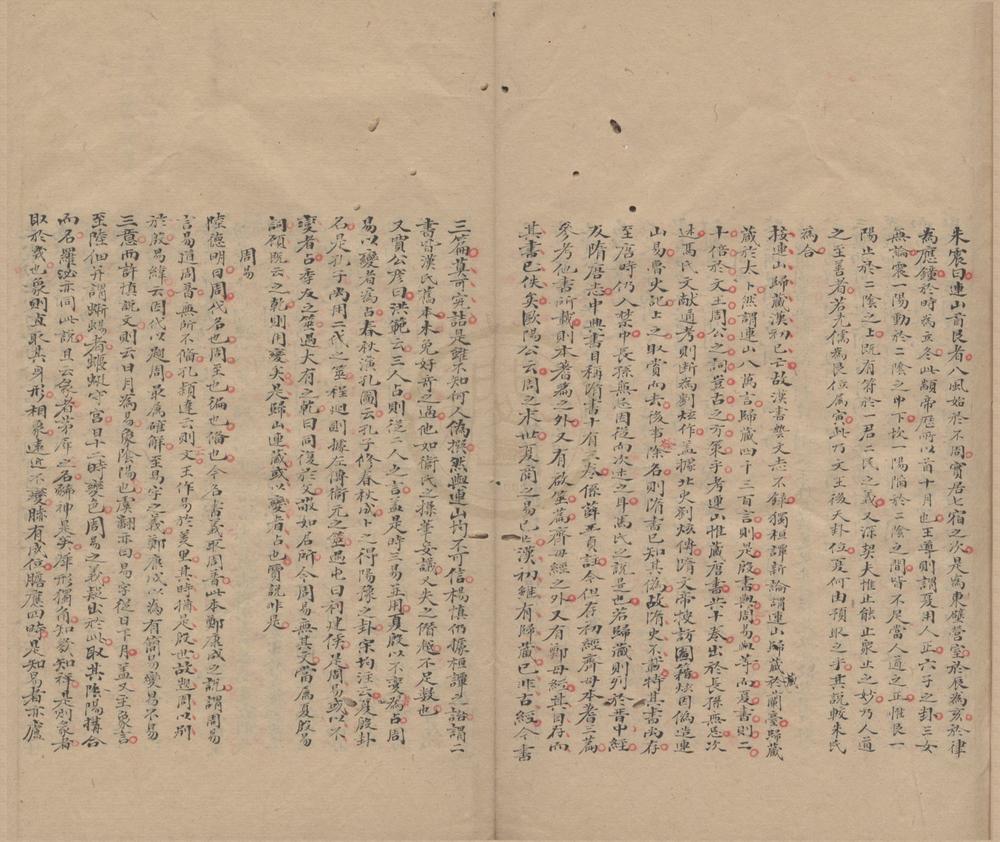 朱震曰連山首艮者八風始於不周實居七宿之次是為東壁營室於辰為亥於律
為應鍾於時為立冬此顓帝歷所以首十月也王道則謂夏用人正六子之卦三女
無論震一陽動於二陰之中下坎一陽陷於二陰之間皆不足當人道之正惟艮一
陽止於二陰之上既有符於一君二民之義又深契夫惟止能止眾止之妙乃人道
之至善者若先儒為艮位屬寅此乃文王後天卦位夏何由預取之乎其說較朱氏
為合
按連山歸藏漢初已亡故漢書藝文志不錄獨桓譚新論謂連山歸藏於蘭臺歸藏
藏於太卜然謂連山八萬言歸藏四十三百言則是殷書與周易等而夏書則二
十倍於文王周公之詞豈古之方策乎考連山惟藏唐書共十卷出於長孫無忌次
述馬氏文獻通考則斷為劉炫作蓋據北史劉炫傳隋文帝搜訪圖籍炫因偽造連
山易魯史記上之取賞而去後事除名則隋書已知其偽故隋史不載特其書尚存
至唐時仍入禁中長孫無忌因從而次述之耳馬氏之說是也若歸藏則列於晉中經
及隋唐志中興書目稱隋書十有三卷係薛正貞註今但存初經齊母本蓍三篇
參考他書所載則本蓍篇之外又有啟筮篇齊母經之外又有鄭母經其目存而
其書已佚矣歐陽公云周之末世夏商之易已亡漢初雖有歸藏已非古經今書
三篇莫可究詰是雖不知何人偽撰然與連山均不可信楊慎仍據桓譚之語謂二
書當漢氏舊本未免好奇之過他如衛氏之操筆妄議又失之僭越不足數也
又賈公彥曰洪範云三人占則從二人之言孟是時三易並用夏殷以不變為占周
易以變者為占春秋演孔圖云孔子修春秋成卜之得陽豫之卦宋均注云夏殷卦
名是孔子尚用二代之筮程迥則據左傳衛元之筮遇屯曰利建侯是周易或以不
變者占季友之筮遇大有之乾曰同復於父敬如君所今周易無其文當屬夏殷易
詞顧既云之乾則用變矣是歸山連藏或以變者占也賈說非是
周易
陸德明曰周代名也周至也徧也備也今名書義取周普此本鄭康成之說謂周易
言易道周普無所不備孔穎達云則文王作易於羑里其時猶是殷世故題周以別
於殷易緯云因代以題周最属確解至易字之義鄭康成以為有簡易變易不易
三意而許慎說文則云日月為易象陰陽也虞翻亦曰易字從日下月蓋又主象言
至陸佃并謂蜥蜴者蝘蜓守宮日十二時變色周易之義疑出於此取其陰陽構合
而名羅泌亦同此說且云彖者茅犀之名豨神是矣犀形獨角知幾知祥是則彖者
取於義也象則直取其身形相象遠近不變肺有成位膽應四時是知易者亦廬